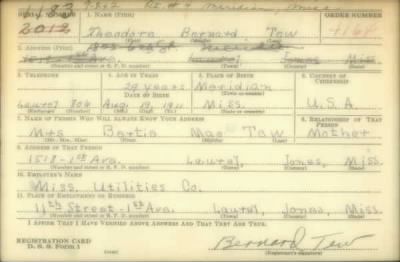 Rt #4 Meridian, Miss
SERIAL NUMBER 1. NAME (Print) ORDER NUMBER
2012 Theodore Bernard Tew
(First) (Middle) (Last)
2. ADDRESS (Print)
Laurel Jones Miss
(Number and street or R. F. D. number) (Town) (County) (State)
3. TELEPHONE 4. AGE IN YEARS 5. PLACE OF BIRTH 6. COUNTRY OF CITIZENSHIP
29 years Meridian
DATE OF BIRTH (Town or county)
Laurel 804 Aug 19 1911 Miss. U.S.A.
(Exchange) (Number) (Mo.) (Day) (Yr.) (State or country)
7. NAME OF PERSON WHO WILL ALWAYS KNOW YOUR ADDRESS 8. RELATIONSHIP OF THAT PERSON
Mrs Bertie Mae Tew Mother
(Mr., Mrs., Miss) (First) (Middle) (Last)
9. ADDRESS OF THAT PERSON
1518-1st Ave. Laurel, Jones, Miss.
(Number and street or R. F. D. number) (Town) (County) (State)
10. EMPLOYER'S NAME
Miss. Utilities Co.
11. PLACE OF EMPLOYMENT OR BUSINESS
11th Street-1st Ave. Laurel, Jones, Miss.
(Number and street or R. F. D. number) (Town) (County) (State)
I AFFIRM THAT I HAVE VERIFIED ABOVE ANSWERS AND THAT THEY ARE TRUE.
REGISTRATION CARD
D. S. S. Form 1 Bernard Tew
(Registrant's signature)